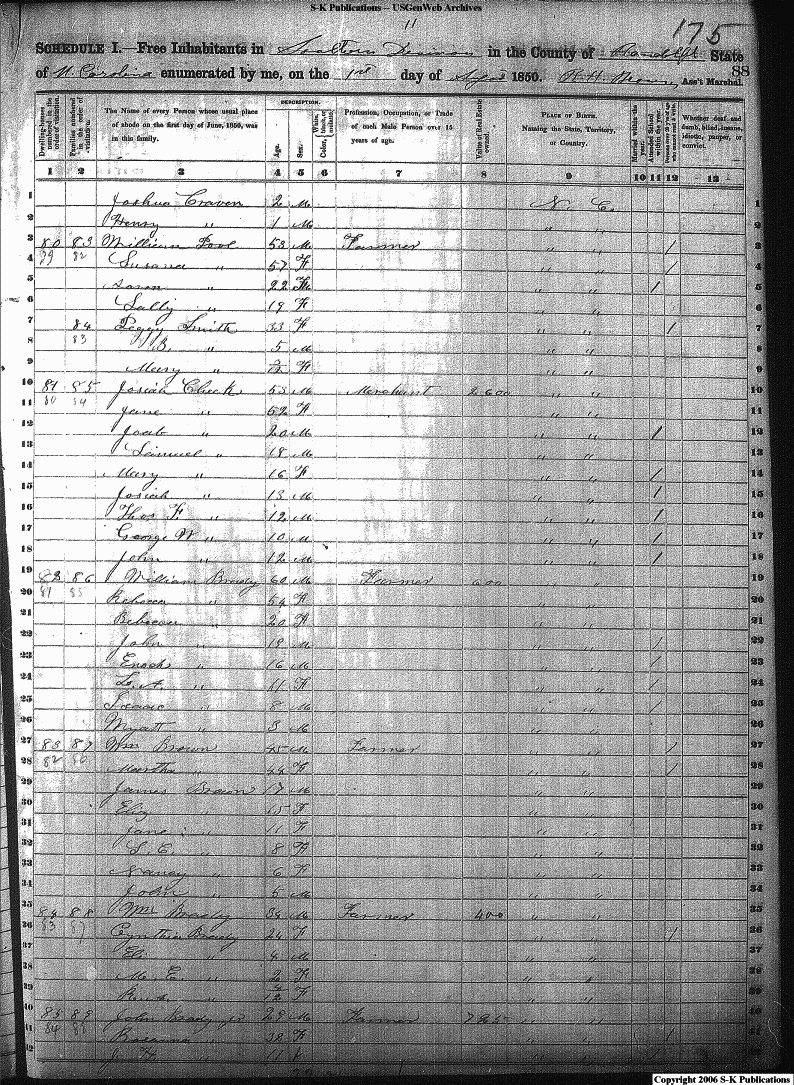 S-K Publications – USGenWeb Archives
11
175
SCHEDULE I.—Free Inhabitants in Southern Division in the County of Randolph State
88
of N Carolina enumerated by me, on the 1st day of 1850. Ass't Marshal
Dwelling-houses numbered in the order of visitation.
Families numbered in the order of visitation.
The Name of every Person whose usual place of abode on the first day of June, 1850, was in this family.
DESCRIPTION.
Age.
Sex.
Color, White, black, or mulatto.
Profession, Occupation, or Trade of each Male Person over 15 years of age.
Value of Real Estate owned.
PLACE OF BIRTH. Naming the State, Territory, or Country.
Married within the year.
Attended School within the year.
Persons over 20 y'rs of age who cannot read & write.
Whether deaf and dumb, blind, insane, idiotic, pauper, or convict.
1 2 3 4 5 6 7 8 9 10 11 12 13
1 Joshua Craven 2 M N. C. 1
2 Henry " 1 M " " 2
3 80 83 William Pool 53 M Farmer " " / 3
4 79 82 Susana " 57 F " " / 4
5 " 22 " " / 5
6 Sally " 19 F " " 6
7 84 Peggy Smith 33 F " " / 7
8 83 " 5 M " " 8
9 Mary " F " " 9
10 81 85 Josiah Cheek 53 M Merchant " " 10
11 80 84 Jane " 52 F " " 11
12 Jacob " 20 M " " / 12
13 Samuel " 18 M " " 13
14 Mary " 16 F " " / 14
15 Josiah " 13 M " " / 15
16 Thos F " 12 M " " / 16
17 George W " 10 M " " / 17
18 John " 12 M " " / 18
19 82 86 William Brady 60 M Farmer 600 " " 19
20 81 85 Rebecca " 54 F " " 20
21 Rebecca " 20 F " " 21
22 John " M " " / 22
23 Enoch " 16 M " " / 23
24 " 11 F " " / 24
25 Isaac " 8 M " " / 25
26 Wyatt " 3 M " " 26
27 83 87 Wm Brown 45 M Farmer " " / 27
28 82 86 Martha " 44 F " " / 28
29 James Brown 17 M " " 29
30 Eliz " 15 F " " 30
31 Jane " 11 F " " 31
32 " 8 F " " 32
33 Nancy " 6 F " " 33
34 John " 5 M " " 34
35 84 88 Wm Brady 34 M Farmer 400 " " 35
36 83 87 Cynthia Brady 24 F " " / 36
37 Eli " 4 M " " 37
38 M. E. " 2 F " " 38
39 " F " " 39
40 85 89 John Brady jr 29 M Farmer 725 " " 40
41 84 88 Rosanna " 32 F " " / 41
42 " 11 " " 42
Copyright 2006 S-K Publications